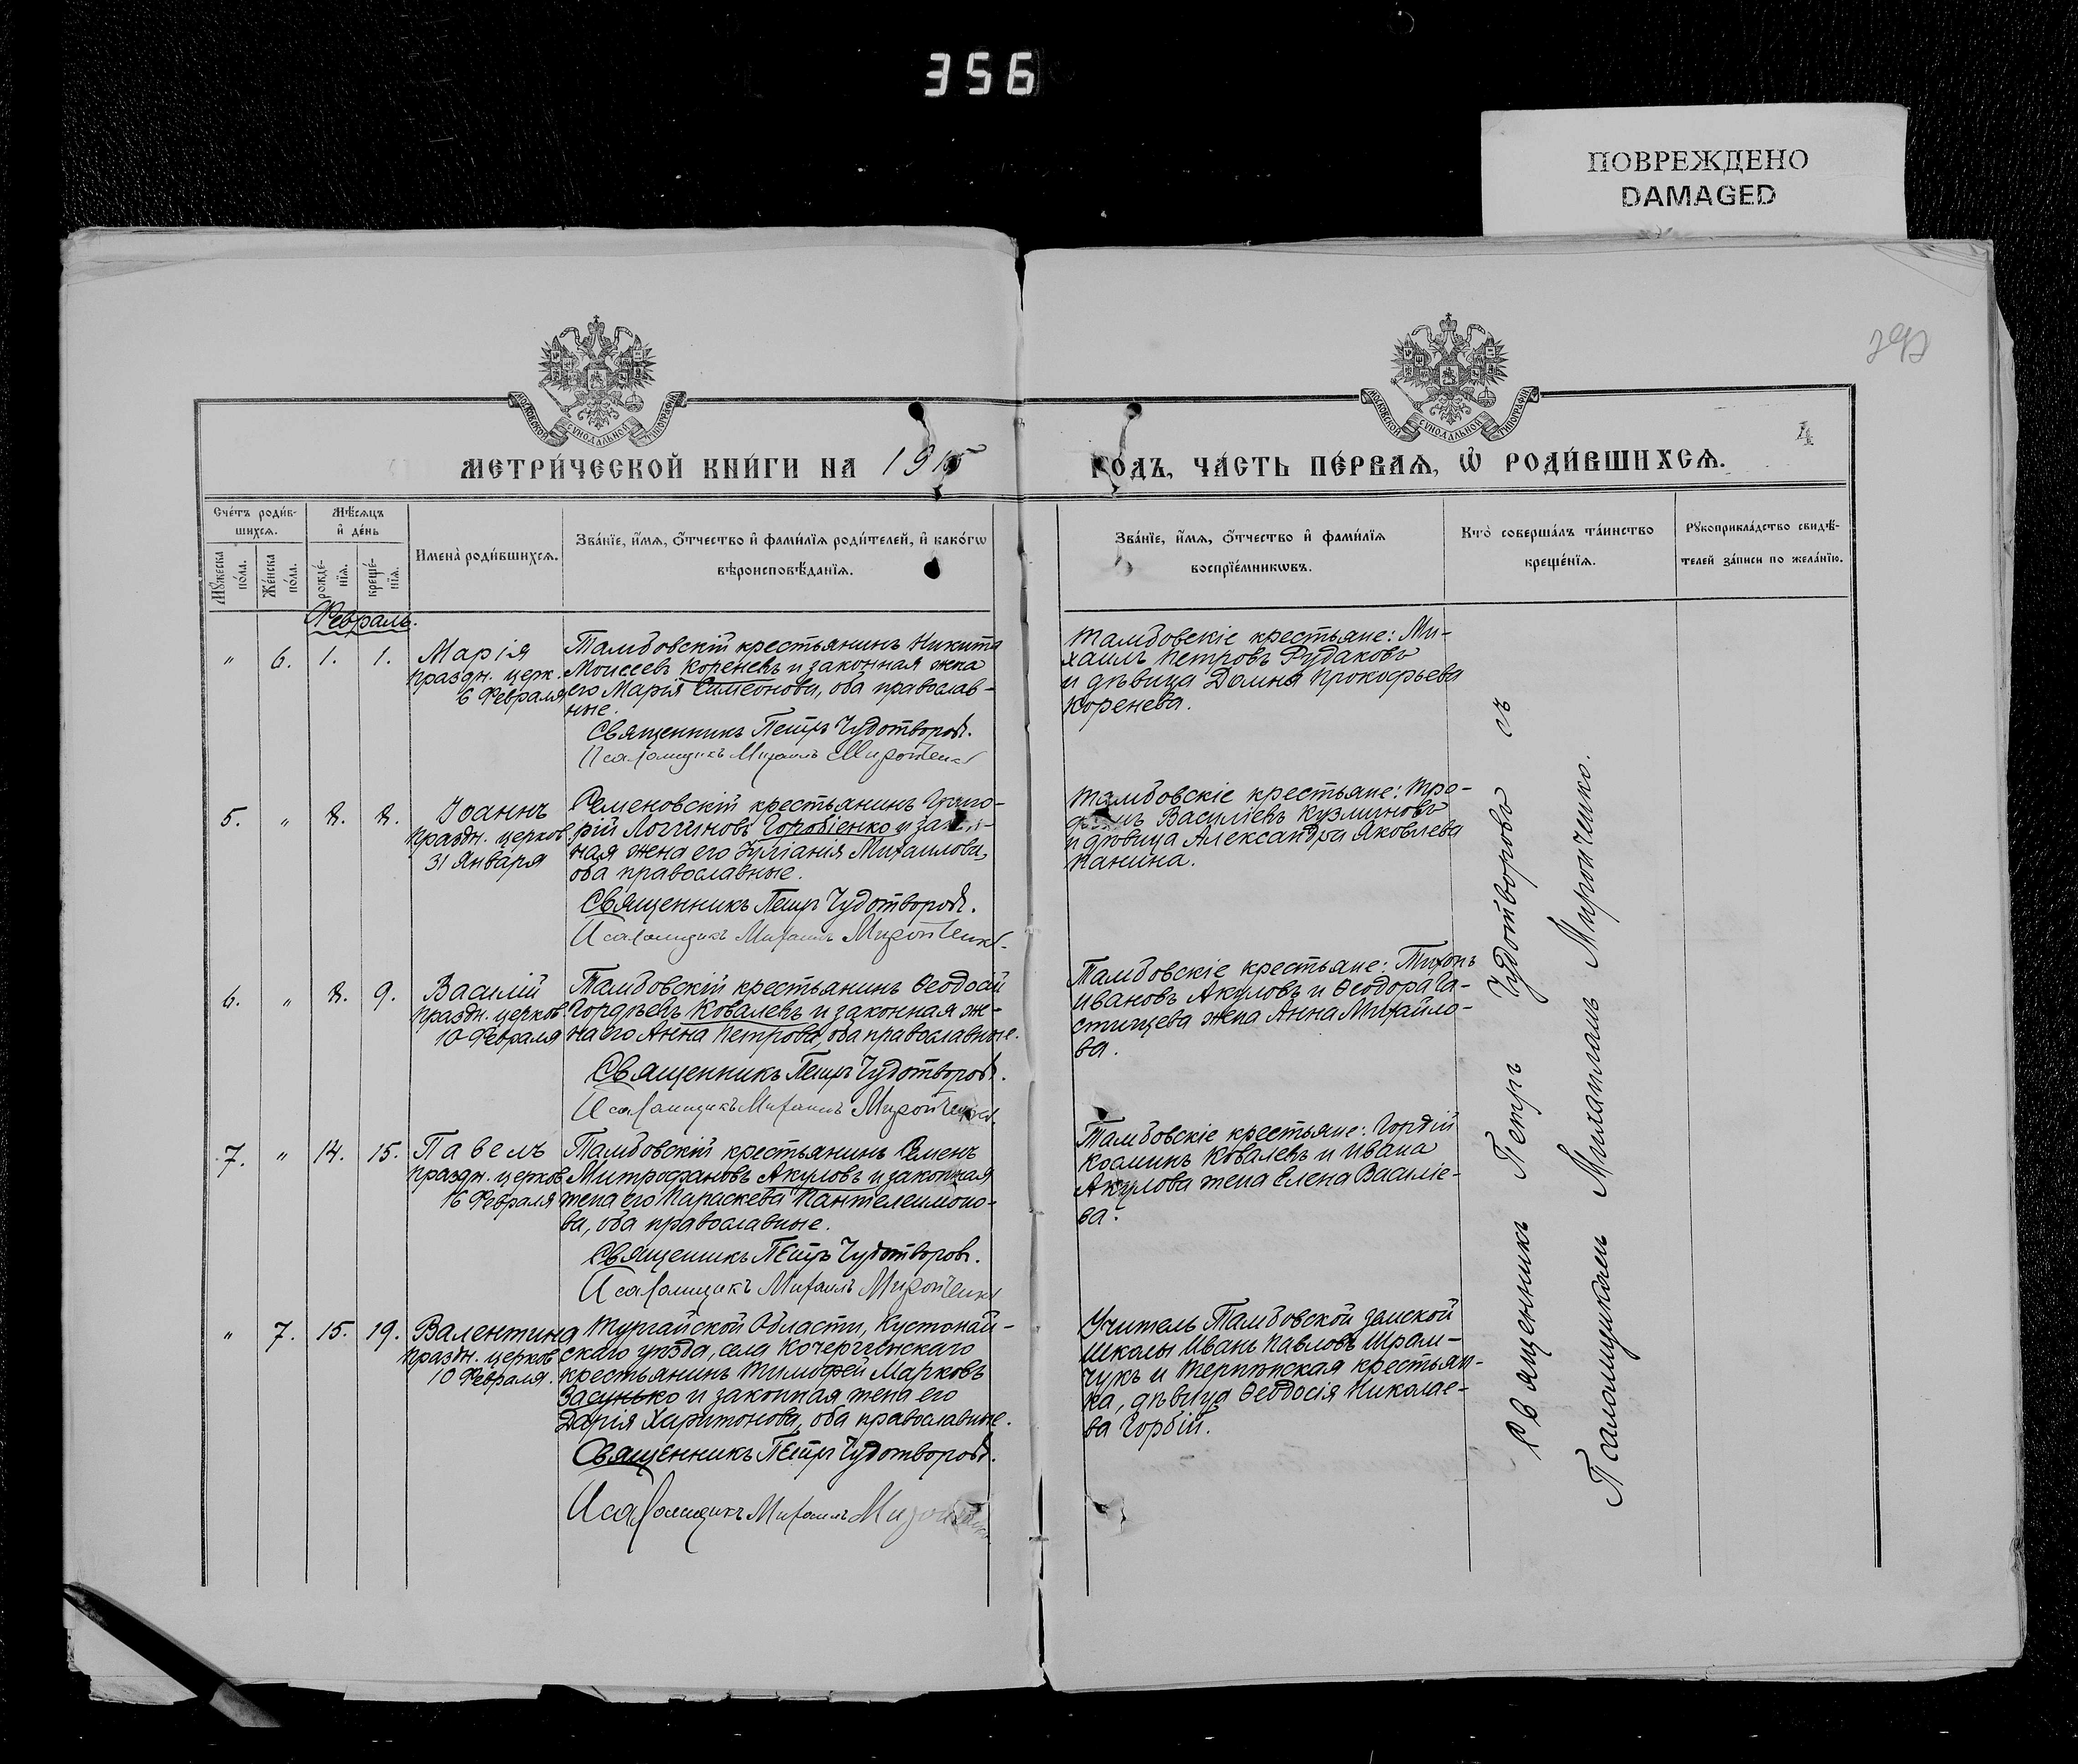 356
ПОВРЕЖДЕНО
DAMAGED
МОСКОВСКОЙ СѴНОДАЛЬНОЙ ТИПОГРАФІИ
МОСКОВСКОЙ СѴНОДАЛЬНОЙ ТИПОГРАФІИ
4
МЕТРИ́ЧЕСКОЙ КНИ́ГИ НА 1915
ГОДЪ, ЧА́СТЬ ПЕ́РВАѦ, Ѡ҆ РОДИ́ВШИХСѦ.
Сче́тъ роди́в-
шихсѧ.
Мѣ́сѧцъ
и҆ де́нь
Мꙋ́жеска
по́ла.
Же́нска
по́ла.
рожде́-
нїѧ.
креще́-
нїѧ.
Имена̀ роди́вшихсѧ.
Зва́нїе, и҆́мѧ, ѻ҆́тчество и҆ фами́лїѧ роди́телей, и҆ како́гѡ
вѣроисповѣ́данїѧ.
Зва́нїе, и҆́мѧ, ѻ҆́тчество и҆ фами́лїѧ
воспрїе́мникѡвъ.
Кто̀ соверша́лъ та́инство
креще́нїѧ.
Рꙋкоприкла́дство свидѣ́-
телей за́писи по жела́нїю.
Февраль.
" 6. 1. 1. Марія
праздн. церк.
6 Февраля
Тамбовскій крестьянинъ Никита
Моисеевъ Кореневъ и законная жена
его Марія Симеонова, оба православ-
ные.
Священникъ Петръ Чудотворовъ.
Псаломщикъ Михаилъ Миронченко
Тамбовскіе крестьяне: Ми-
хаилъ Петровъ Рудаковъ
и дѣвица Домна Прокофьева
Коренева.
5. " 8. 8. Іоаннъ
праздн. церков.
31 Января
Семеновскій крестьянинъ Григо-
рій Логгиновъ Горобіенко и закон-
ная жена его Іуліанія Михаилова,
оба православные.
Священникъ Петръ Чудотворовъ.
Псаломщикъ Михаилъ Миронченко.
Тамбовскіе крестьяне: Тро-
Василіевъ Кузминовъ
и дѣвица Александра Яковлева
Панина.
6. " 8. 9. Василій
праздн. церков.
10 Февраля
Тамбовскій крестьянинъ Ѳеодосій
Гордѣевъ Ковалевъ и законная же-
на его Анна Петрова, оба православные.
Священникъ Петръ Чудотворовъ.
Псаломщикъ Михаилъ Миронченко.
Тамбовскіе крестьяне: Тихонъ
Ивановъ Акуловъ и Ѳеодора Ча-
стищева жена Анна Михайло-
ва.
7. " 14. 15. Павелъ
праздн. церков
16 Февраля
Тамбовскій крестьянинъ Семенъ
Митрофановъ Акуловъ и законная
жена его Параскева Пантелеимоно-
ва, оба православные.
Священникъ Петръ Чудотворовъ.
Псаломщикъ Михаилъ Миронченко
Тамбовскіе крестьяне: Гордій
Косминъ Ковалевъ и Ивана
Акулова жена Елена Василіе-
ва.
" 7. 15. 19. Валентина
праздн. церков
10 Февраля.
Тургайской Области, Кустонай-
скаго уѣзда, села Кочергинскаго
крестьянинъ Тимофей Марковъ
Засунько и законная жена его
Дарія Харитонова, оба православные.
Священникъ Петръ Чудотворовъ.
Псаломщикъ Михаилъ Миронченко
Учитель Тамбовской земской
школы Иванъ Павловъ Шрам-
чукъ и крестьян-
ка, дѣвица Ѳеодосія Николае-
ва Горбій.
Священникъ Петръ Чудотворовъ съ
Псаломщикомъ Михаиломъ Миронченко.